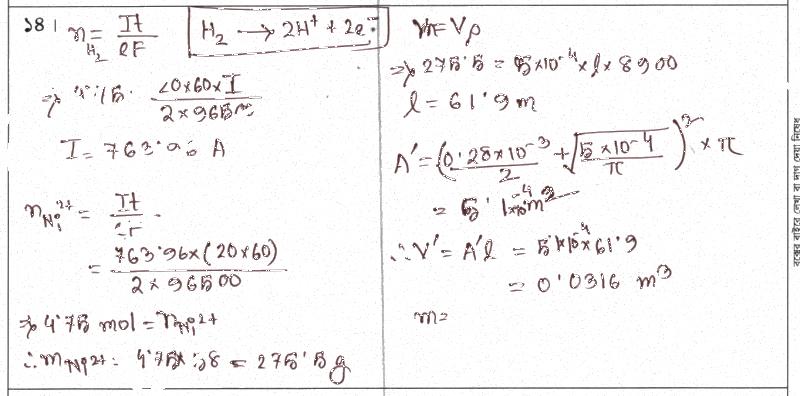 ১৪। n_H₂ = It/eF   H₂ → 2H⁺ + 2e⁻
⇒ 4.75 = 20×60×I / 2×96500
I = 763.96 A
n_Ni²⁺ = It/eF
= 763.96×(20×60) / 2×96500
⇒ 4.75 mol = n_Ni²⁺
∴ m_Ni²⁺ = 4.75×58 = 275.5 g
m = Vρ
⇒ 275.5 = 5×10⁻⁴×l×8900
l = 61.9 m
A' = (0.28×10⁻³/2 + √(5×10⁻⁴/π))² × π
= 5.1×10⁻⁴ m²
∴ V' = A'l = 5.1×10⁻⁴×61.9
= 0.0316 m³
m =
বক্সের বাইরে লেখা বা দাগ দেয়া নিষেধ